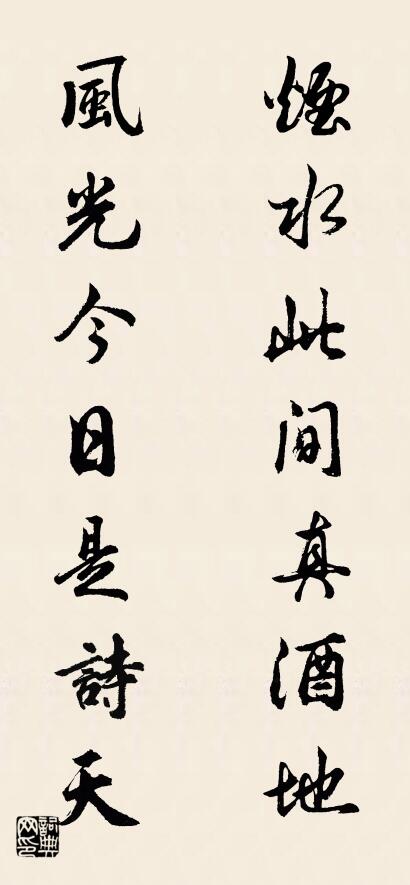 煙水此间真酒地
風光今日是詩天
詞典网印